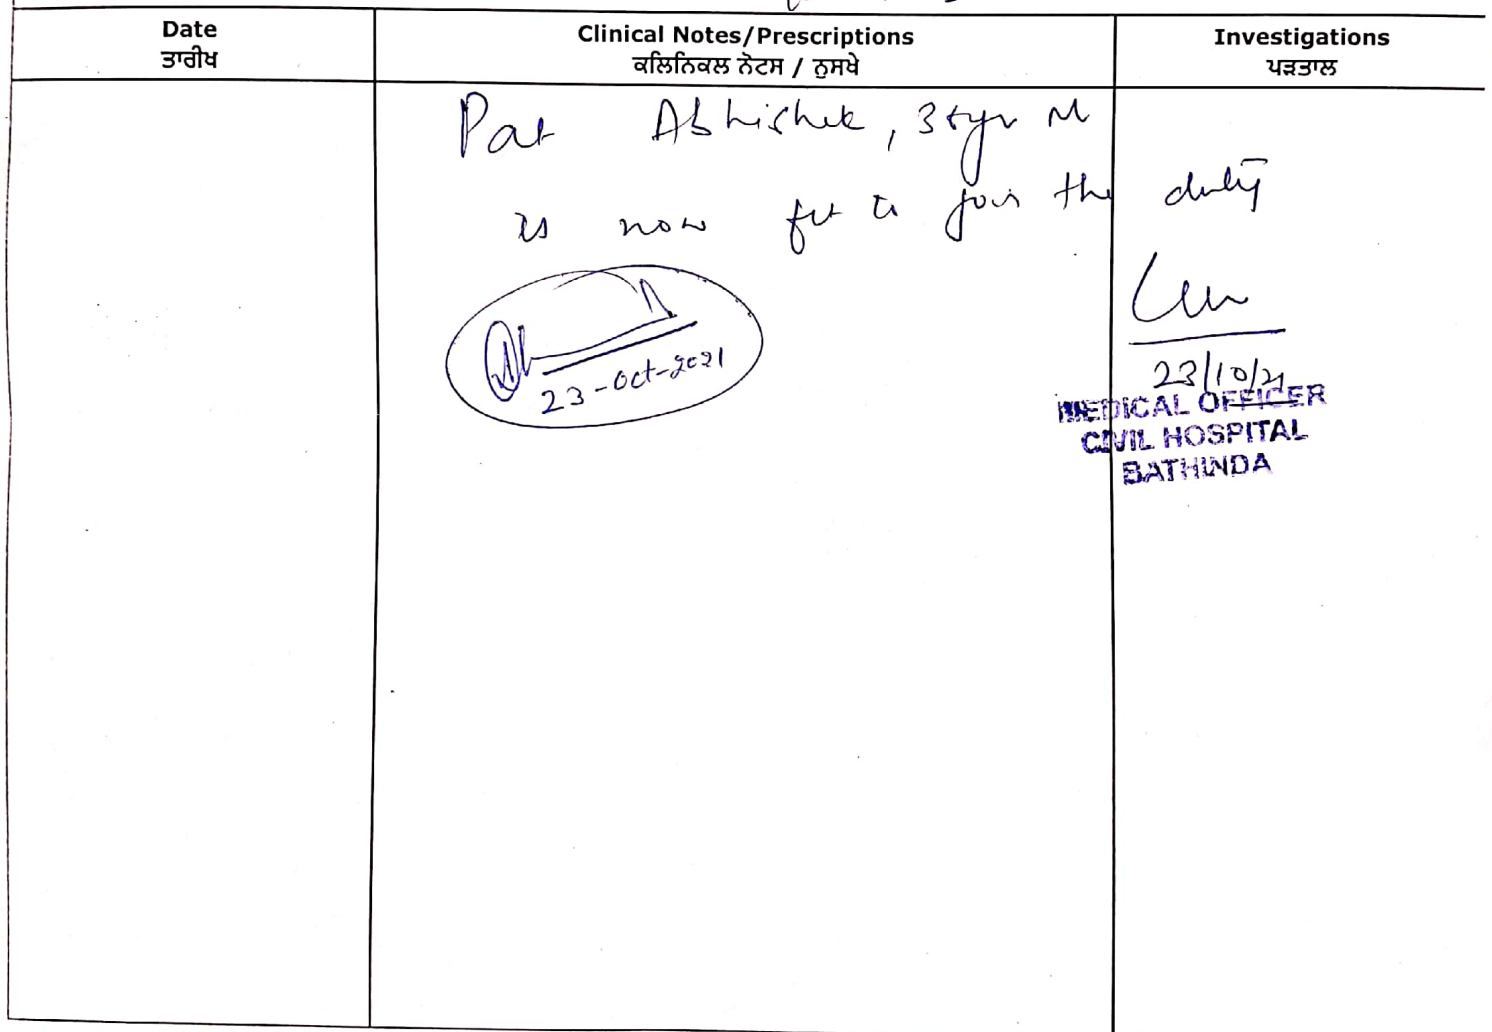 Date
ਤਾਰੀਖ
Clinical Notes/Prescriptions
ਕਲਿਨਿਕਲ ਨੋਟਸ / ਨੁਸਖੇ
Investigations
ਪੜਤਾਲ
Pat Abhishek, M
is now fit to join the duty
23-Oct-2021
23/10/21
MEDICAL OFFICER
CIVIL HOSPITAL
BATHINDA